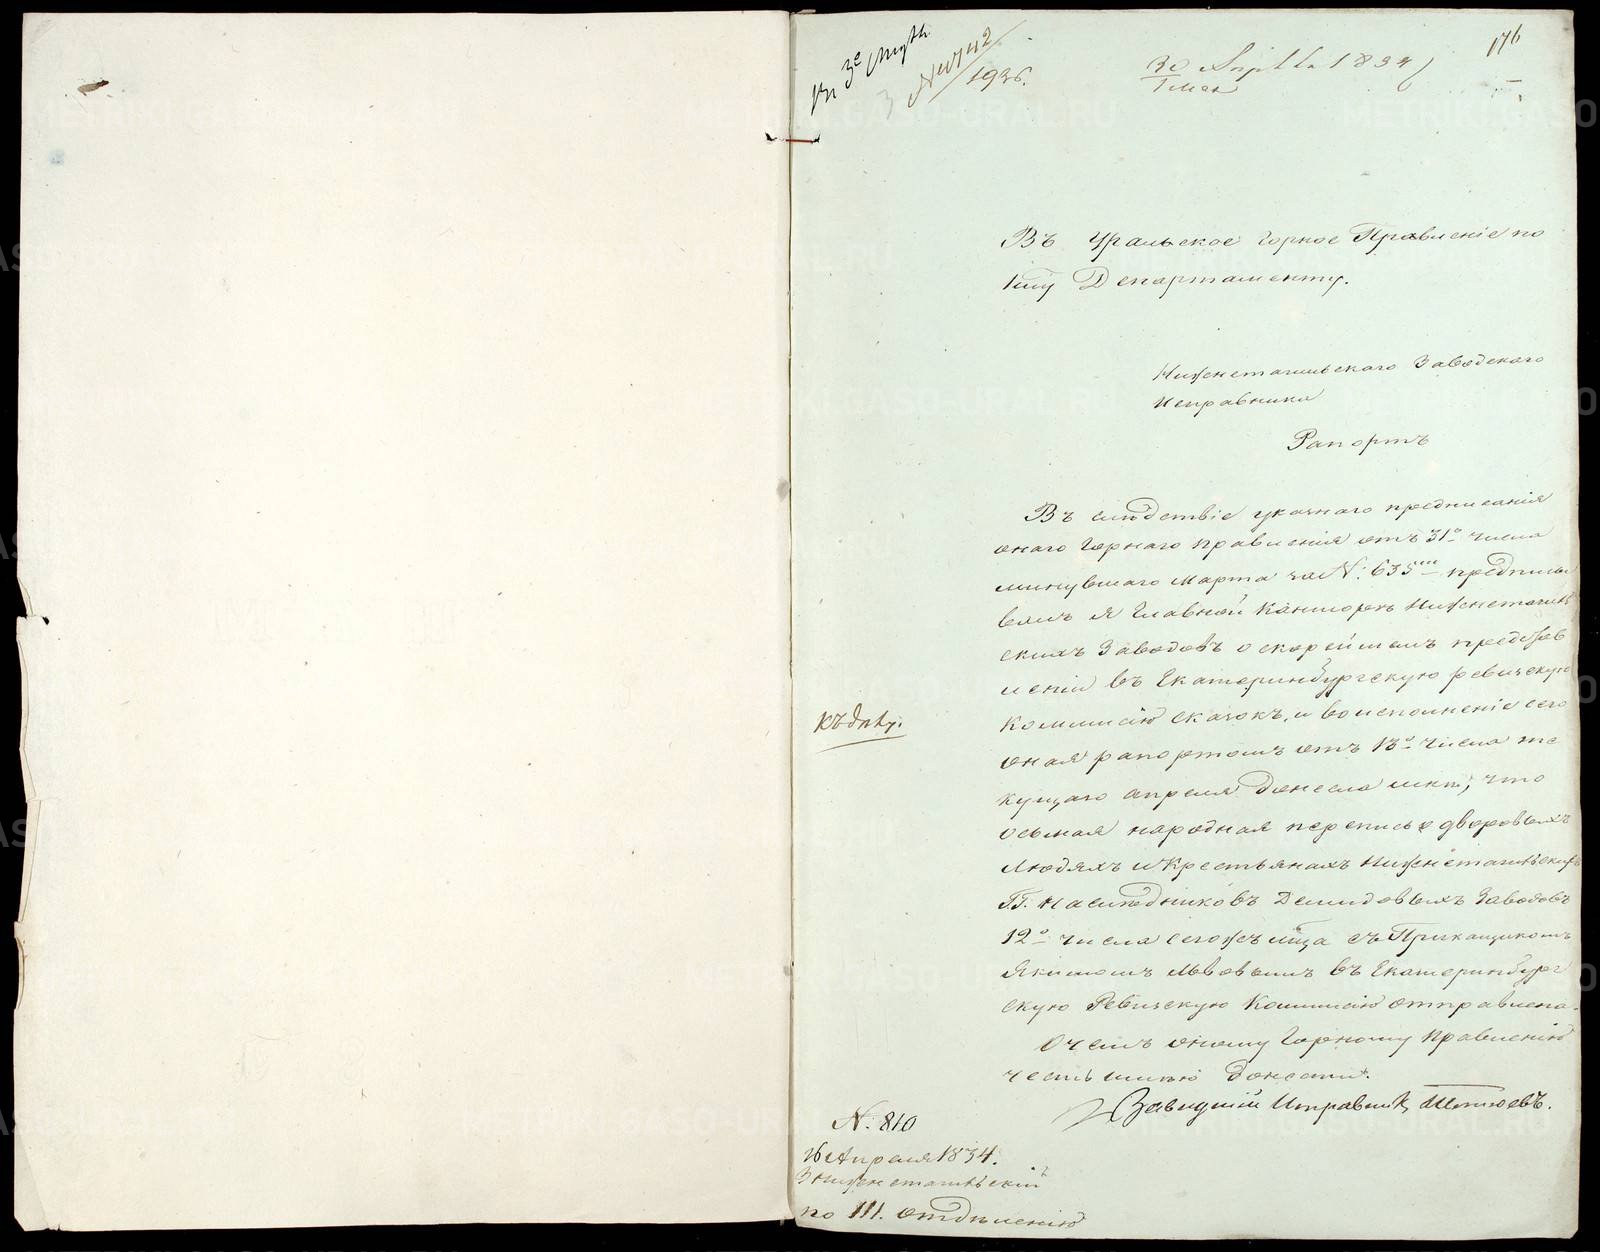 176
Въ 3й столъ
1936.
30 Апрѣля 1834
Въ Уральское Горное Правленіе по
1му Департаменту.
Нижнетагильскаго Заводскаго
Исправника
Рапортъ
Въ слѣдствіе указнаго предписанія
онаго Горнаго правленія отъ 31го числа
минувшаго Марта за №: 635мъ предписы
валъ я Главной Канторѣ Нижнетагиль
скихъ Заводовъ о скорѣйшемъ представ
леніи въ Екатеринбургскую ревизскую
Коммисію сказокъ, и во исполненіе сего
оная рапортомъ отъ 13го числа те
кущаго апреля донесла мнѣ, что
осьмая народная перепись о дворовыхъ
Людяхъ и Крестьянахъ Нижнетагильскихъ
ГГ. Наслѣдниковъ Демидовыхъ Заводовъ
12го числа сегожъ мѣсяца съ Прикащикомъ
Якимомъ Львовымъ въ Екатеринбург
скую Ревизскую Коммисію отправлена.
О чемъ оному Горному Правленію
честь имѣю донести.
Заводскій Исправникъ
къ дѣлу.
№. 810
16 Апреля 1834.
З Нижнетагильскій
по III. отдѣленію
METRIKI.GASO-URAL.RU